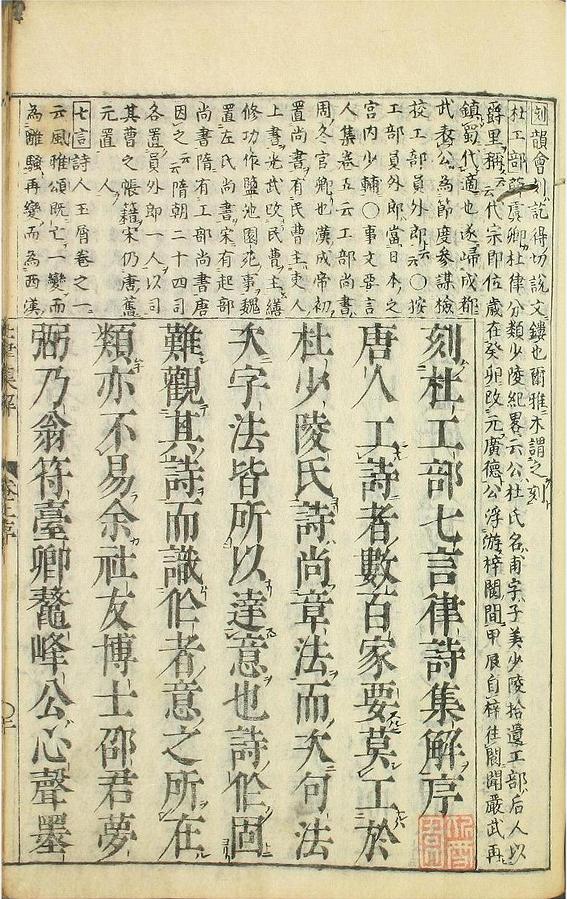 刻韻會引說得切說文鏤也爾雅木謂之刻
杜工部虞卿杜律分類少陵紀畧云公杜氏名甫字子美少陵拾遺工部后人以
爵里稱云云代宗即位歲在癸卯改元廣德公浮游梓閬間甲辰自梓往閬聞嚴武再
鎮蜀代適也遂歸成都
武表公為節度參謀檢
校工部員外郎云云〇按
工部員外郎當日本之
宮内少輔〇事文要言
人集卷五云工部尚書
周冬官卿也漢成帝初
置尚書有民曹主吏人
上書光武改民曹主繕
修功作鹽池園苑事魏
置左民尚書宋有起部
尚書隋有工部尚書唐
因之云云隋朝二十四司
各置員外郎一人以司
其曹之帳籍宋仍唐舊
元置一人
七言詩人玉屑卷之一
云風雅頌既亡一變而
為離騷再變而為西漢
刻杜工部七言律詩集解序
唐人工詩者數百家要莫工於
杜少陵氏詩尚章法而次句法
次字法皆所以達意也詩作固
難觀其詩而識作者意之所在
類亦不易余社友博士邵君夢
弼乃翁符臺卿鰲峰公心聲墨